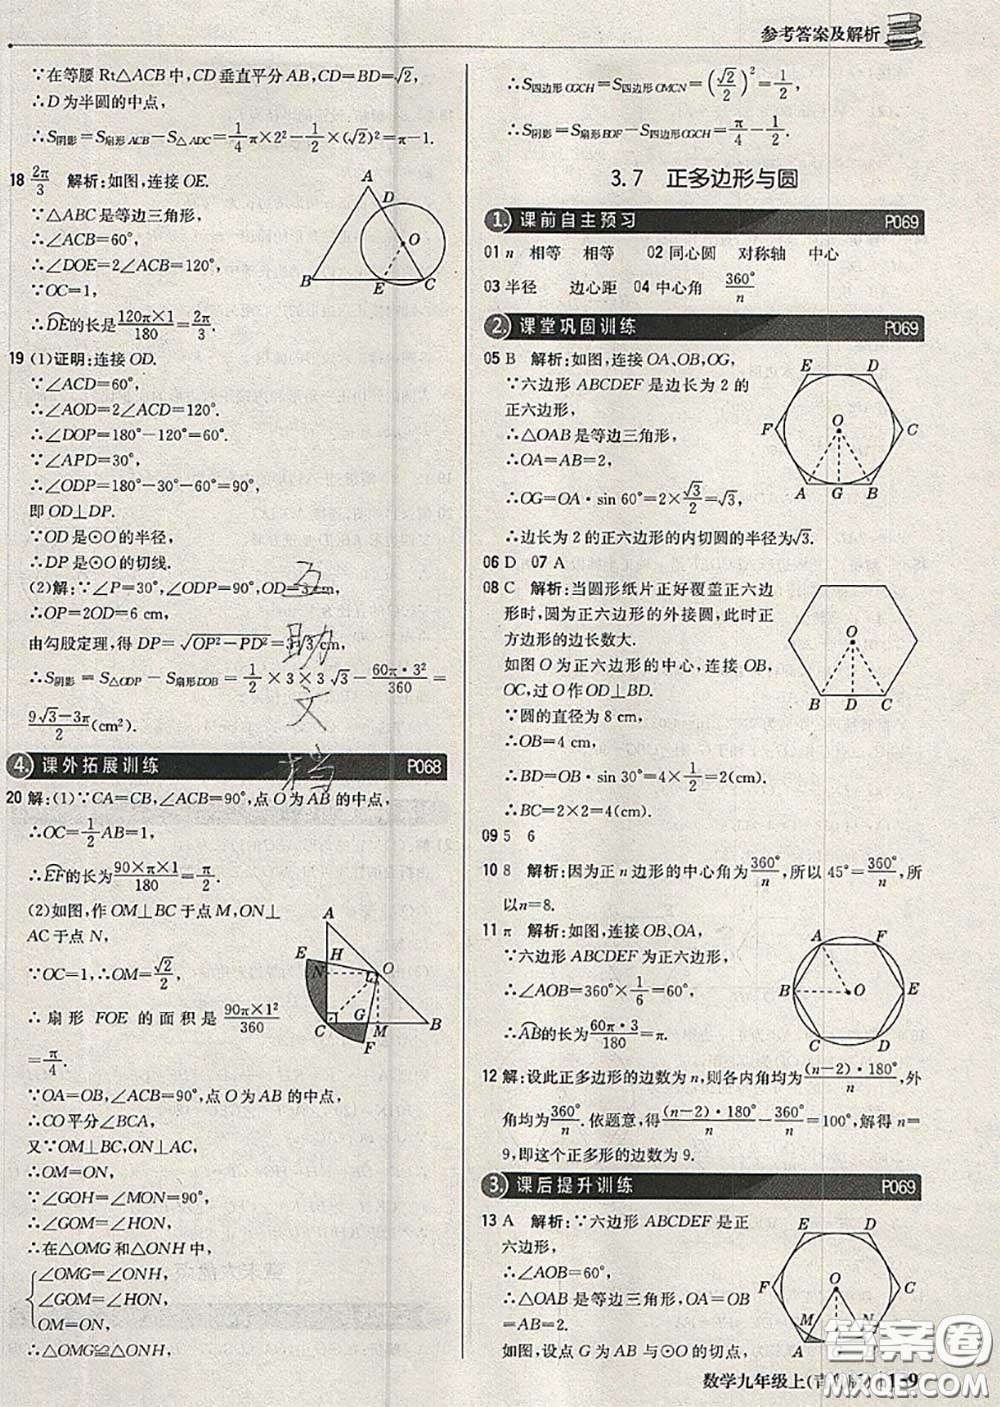 参考答案及解析
∵在等腰 Rt△ACB 中,CD 垂直平分 AB,CD=BD=√2,
∴D 为半圆的中点,
∴S阴影=S扇形ACB-S△ADC=1/4π×2²-1/2×(√2)²=π-1.
18 2π/3 解析:如图,连接 OE.
∵△ABC 是等边三角形,
∴∠ACB=60°,
∴∠DOE=2∠ACB=120°.
∵OC=1,
∴DE的长是120π×1/180=2π/3.
A
D
O
B
E
C
19 (1)证明:连接 OD.
∵∠ACD=60°,
∴∠AOD=2∠ACD=120°.
∴∠DOP=180°-120°=60°.
∵∠APD=30°,
∴∠ODP=180°-30°-60°=90°,
即 OD⊥DP.
∵OD 是⊙O 的半径,
∴DP 是⊙O 的切线.
(2)解:∵∠P=30°,∠ODP=90°,OD=3 cm,
∴OP=2OD=6 cm,
由勾股定理,得 DP=√(OP²-PD²)=3√3 cm,
∴S阴影=S△ODP-S扇形DOB=1/2×3×3√3-60π·3²/360=
(9√3-3π)/2(cm²).
4. 课外拓展训练 P068
20 解:(1)∵CA=CB,∠ACB=90°,点 O 为 AB 的中点,
∴OC=1/2AB=1,
∴EF的长为90×π×1/180=π/2.
(2)如图,作 OM⊥BC 于点 M,ON⊥
AC 于点 N,
∵OC=1,∴OM=√2/2,
∴扇形 FOE 的面积是 90π×1²/360
=π/4.
A
E
H
O
N
G
C
M
B
F
∵OA=OB,∠ACB=90°,点 O 为 AB 的中点,
∴CO 平分∠BCA,
又∵OM⊥BC,ON⊥AC,
∴OM=ON,
∵∠GOH=∠MON=90°,
∴∠GOM=∠HON,
∴在△OMG 和△ONH 中,
∠OMG=∠ONH,
∠GOM=∠HON,
OM=ON,
∴△OMG≌△ONH,
∴S四边形OGCH=S四边形OMCN=(√2/2)²=1/2.
∴S阴影=S扇形EOF-S四边形OGCH=π/4-1/2.
3.7 正多边形与圆
1. 课前自主预习 P069
01 n 相等 相等 02 同心圆 对称轴 中心
03 半径 边心距 04 中心角 360°/n
2. 课堂巩固训练 P069
05 B 解析:如图,连接 OA,OB,OG,
∵六边形 ABCDEF 是边长为 2 的
正六边形,
∴△OAB 是等边三角形,
∴OA=AB=2,
∴OG=OA·sin 60°=2×√3/2=√3,
∴边长为2的正六边形的内切圆的半径为√3.
E D
F O C
A G B
06 D 07 A
08 C 解析:当圆形纸片正好覆盖正六边
形时,圆为正六边形的外接圆,此时正
方边形的边长数大.
如图 O 为正六边形的中心,连接 OB,
OC,过 O 作 OD⊥BC.
∵圆的直径为 8 cm,
∴OB=4 cm,
∴BD=OB·sin 30°=4×1/2=2(cm),
∴BC=2×2=4(cm).
O
B D C
09 5 6
10 8 解析:因为正 n 边形的中心角为360°/n,所以 45°=360°/n,所
以n=8.
11 π 解析:如图,连接 OB、OA,
∵六边形 ABCDEF 为正六边形,
∴∠AOB=360°×1/6=60°,
∴AB的长为60π·3/180=π.
A F
B O E
C D
12 解:设此正多边形的边数为 n,则各内角均为(n-2)·180°/n,外
角均为360°/n.依题意,得(n-2)·180°/n-360°/n=100°,解得 n=
9,即这个正多形的边数为 9.
3. 课后提升训练 P069
13 A 解析:∵六边形 ABCDEF 是正
六边形,
∴∠AOB=60°,
∴△OAB 是等边三角形,OA=OB=
AB=2.
如图,设点 G 为 AB 与⊙O 的切点,
E D
F O C
M N
互助文档
答案圈
MXQE.COM
数学九年级上